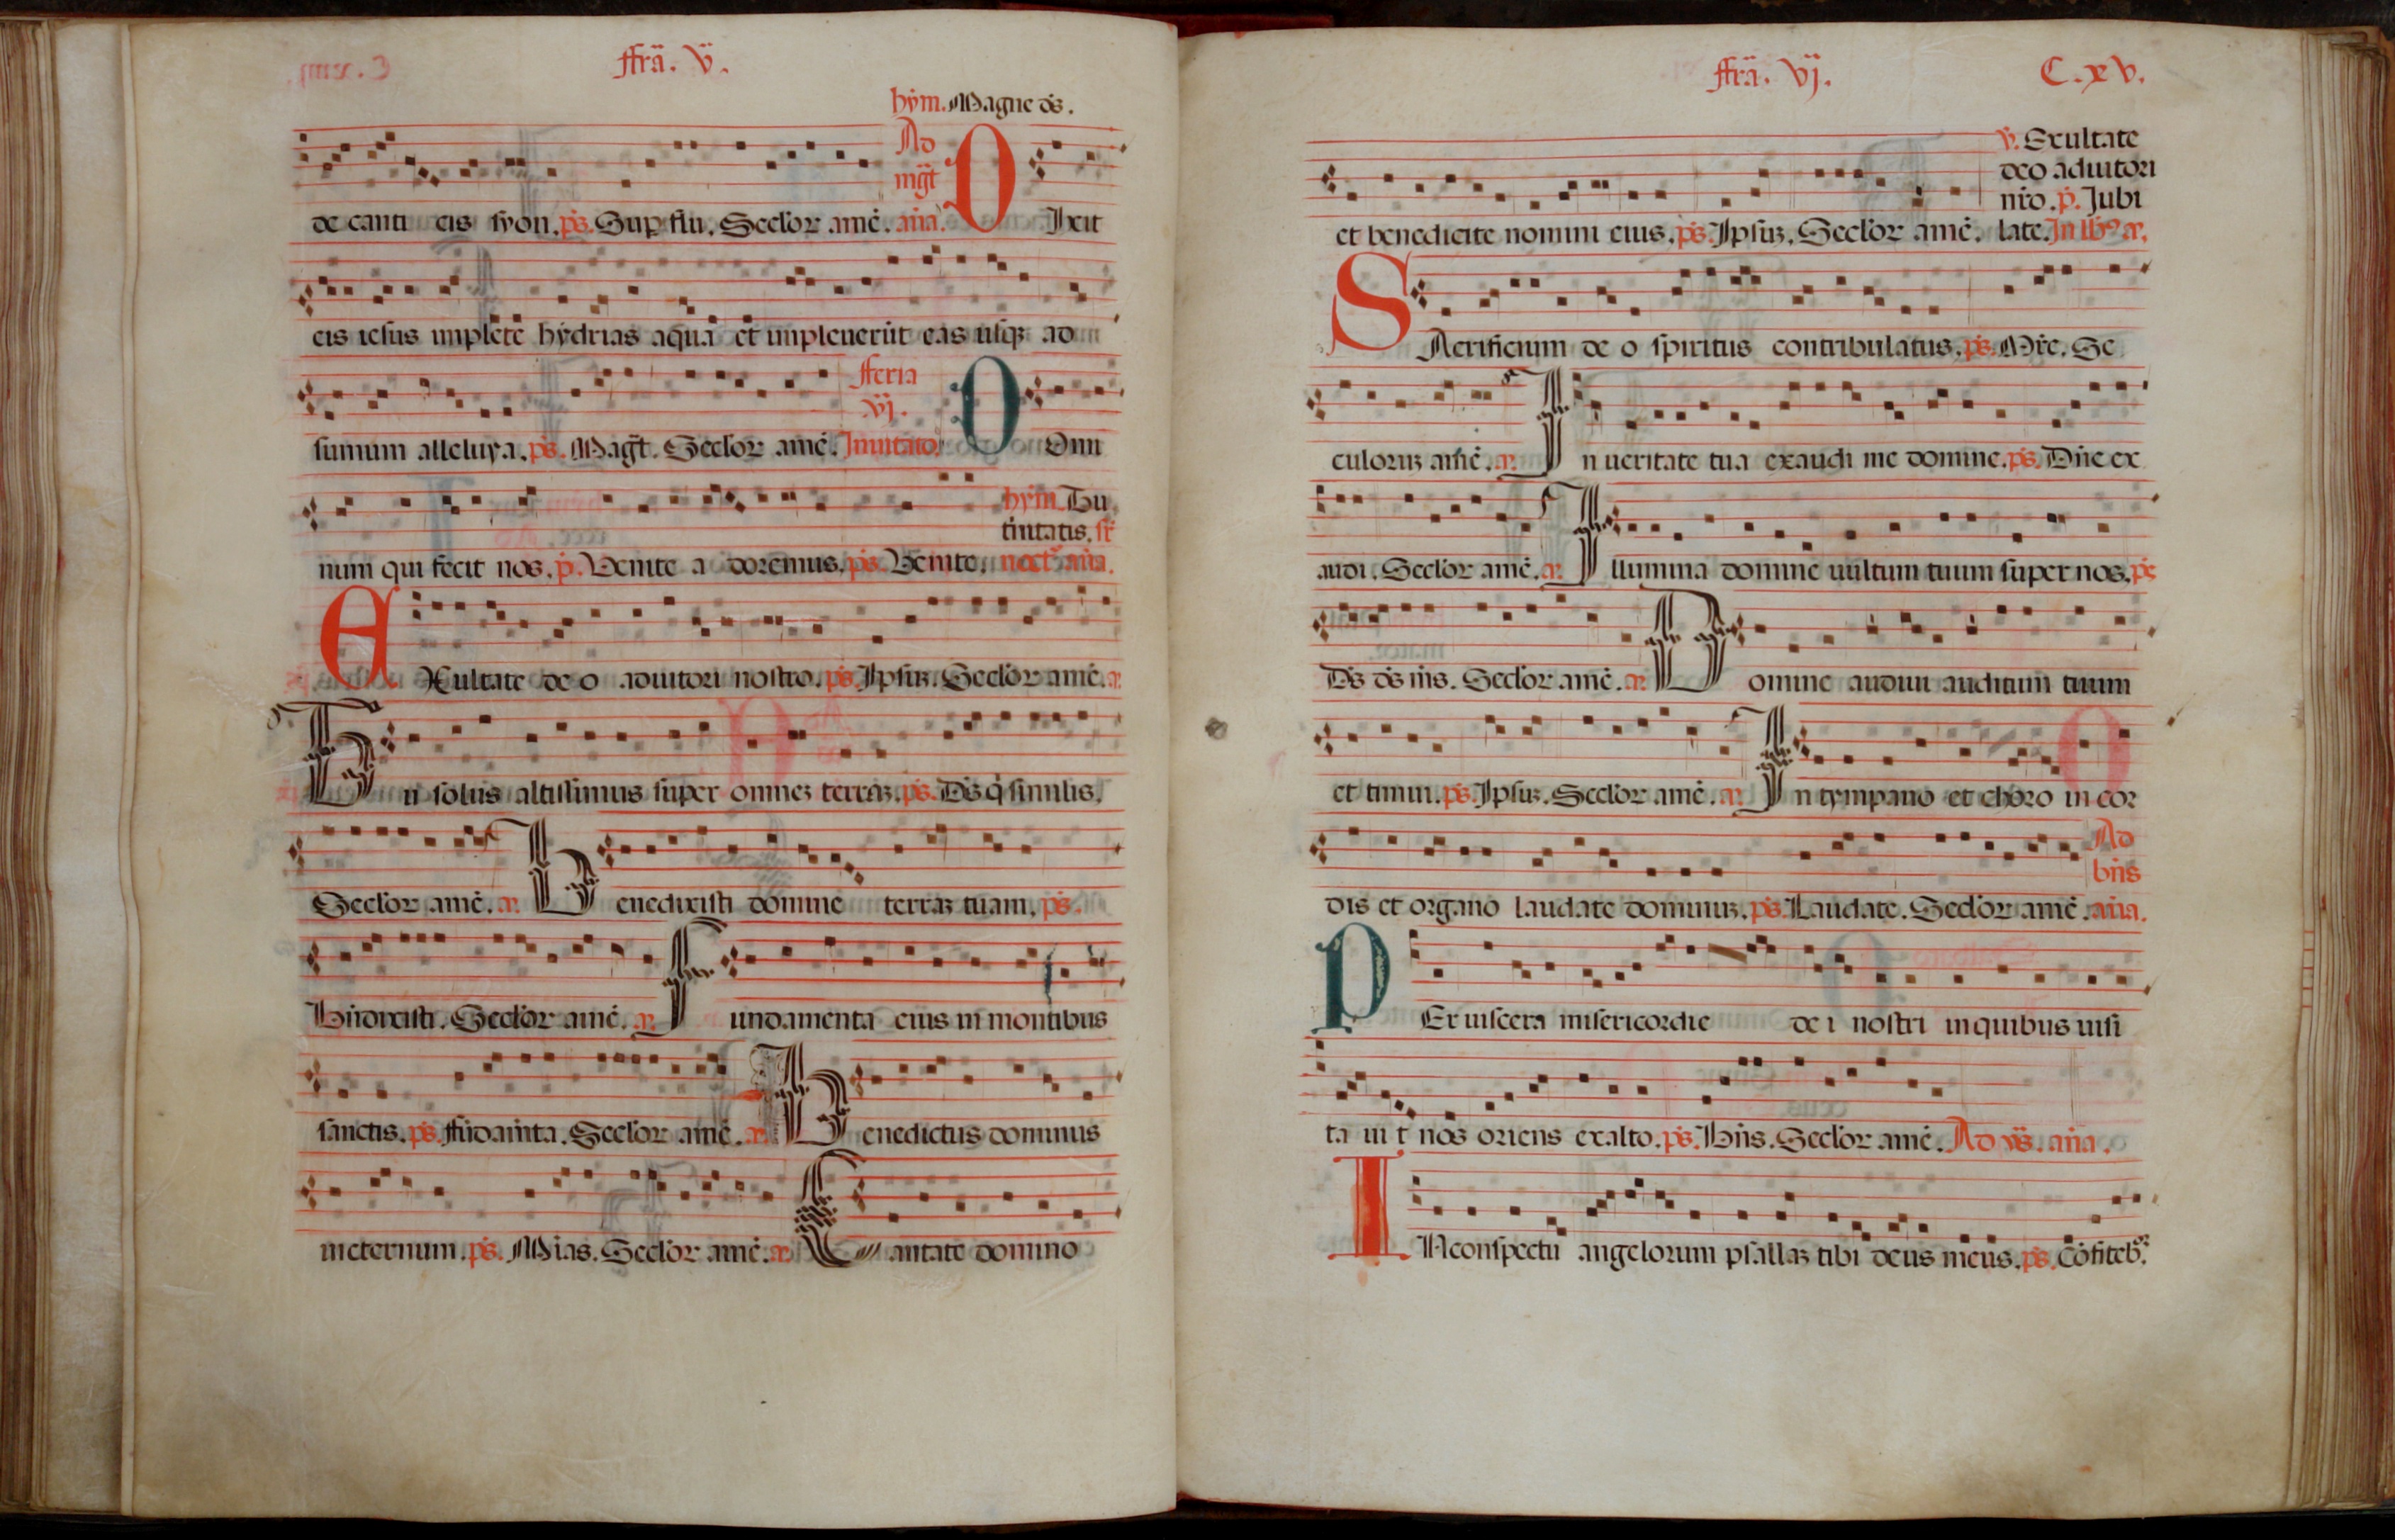 ffrã. v̈.
hẏm. Magne ds̄.
Ad
mḡt
de canti cis syon. ps̄. Sup flu. Sec̄lor amē. an̄a. D Ixit
eis iesus implete hẏdrias aqua et impleuerūt eas usq3 ad
fferia
vj.
sumum alleluya. ps̄. Mag̅t. Sec̄lor amē. Inuitato. D Omi
hẏm. Tu
t̄nitatis.
num qui fecit nos. p̄. Venite a doremus. ps̄. Venite. noct̄. an̄a.
E Xultate de o adiutori nostro. ps̄. Ipsi3. Sec̄lor amē. a.
T u solus altissimus super omne3 terra3. ps̄. Ds̄ q̇ similis.
Sec̄lor amē. a. B enedixisti domine terra3 tuam. ps̄.
Bn̄dixisti. Sec̄lor amē. a. F undamenta eius in montibus
sanctis. ps̄. ffūdam̄ta. Sec̄lor amē. a. B enedictus dominus
ineternum. ps̄. Mīas. Sec̄lor amē. a. C antate domino
ffrã. vj̈. C. xv.
v̄. Exultate
deo adiutori
nr̄o. p̄. Jubi
et benedicite nomini eius. ps̄. Ipsu3. Sec̄lor amē. late. In lb9 a.
S Acrificium de o spiritus contribulatus. ps̄. Mr̄e. Se
culoru3 amē. a. I n ueritate tua exaudi me domine. ps̄. Dn̄e ex
audi. Sec̄lor amē. a. I llumina domine uultum tuum super nos. ps̄
Ds̄ ds̄ m̄s. Sec̄lor amē. a. D omine audiui auditum tuum
et timui. ps̄. Ipsu3. Sec̄lor amē. a. I n tympano et choro in cor
Ad
bn̄s
dis et organo laudate dominu3. ps̄. Laudate. Sec̄lor amē. an̄a.
P Er uiscera misericordie de i nostri inquibus uisi
ta ui t nos oriens exalto. ps̄. Bn̄s. Sec̄lor amē. Ad xs̄. an̄a.
I Nconspectu angelorum psalla3 tibi deus meus. ps̄. Cōfiteb̄.